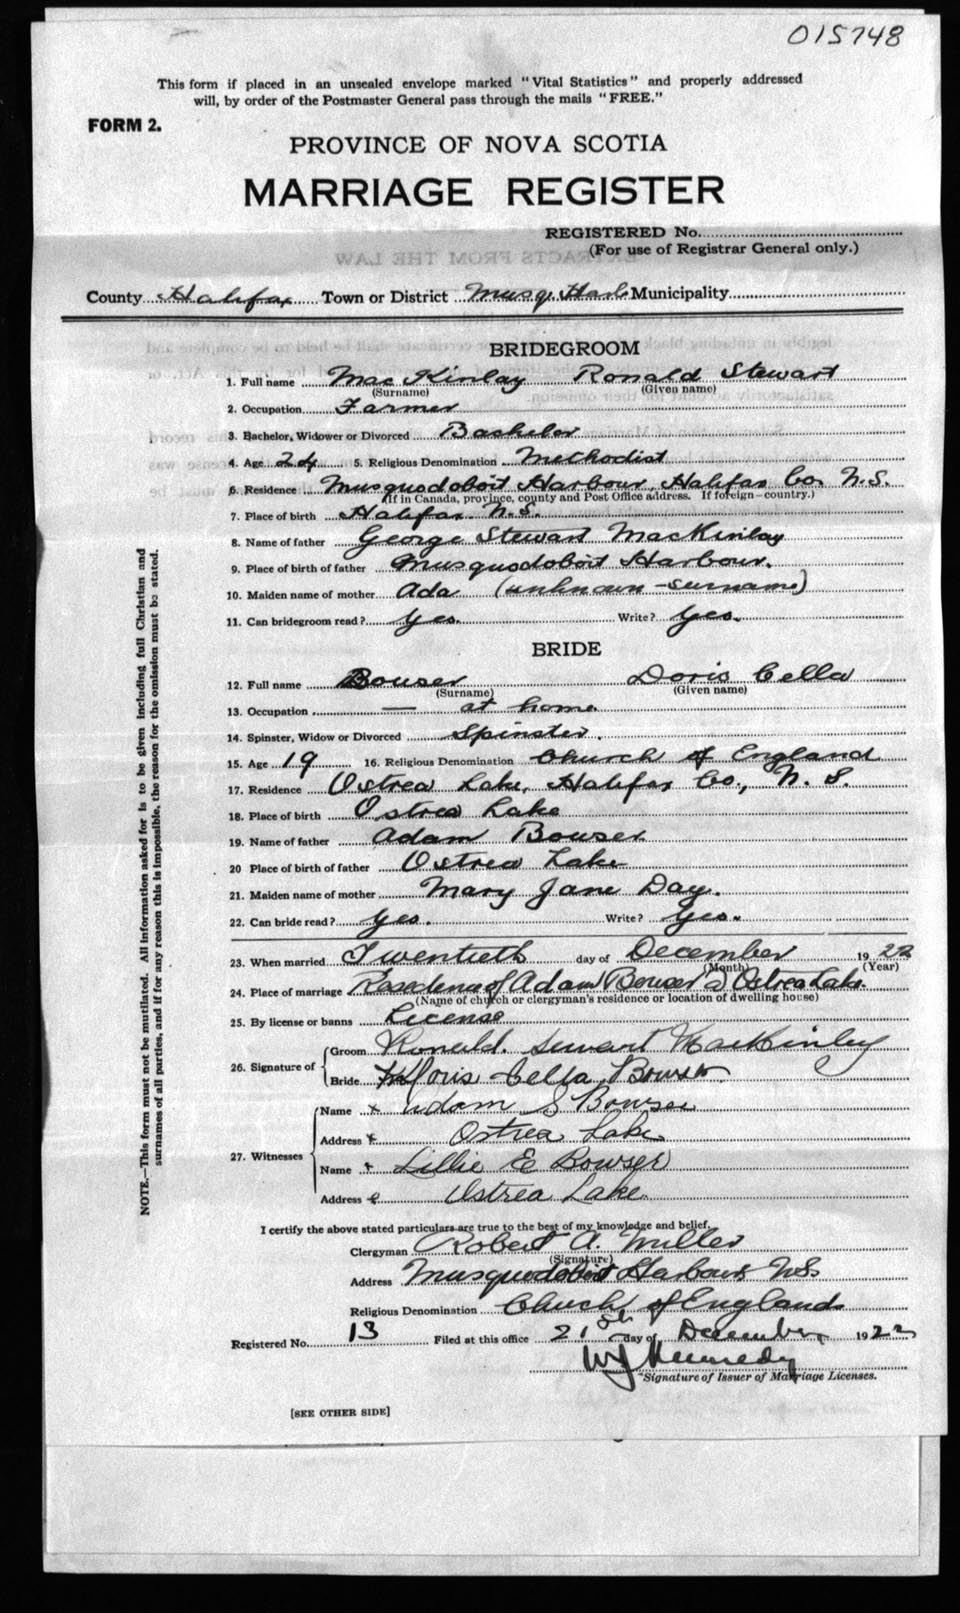 015748
This form if placed in an unsealed envelope marked "Vital Statistics" and properly addressed
will, by order of the Postmaster General pass through the mails "FREE."
FORM 2.
PROVINCE OF NOVA SCOTIA
MARRIAGE REGISTER
REGISTERED No.
(For use of Registrar General only.)
EXTRACTS FROM THE LAW
County Halifax Town or District Musq. Harb Municipality
BRIDEGROOM
1. Full name MacKinlay Ronald Stewart
(Surname) (Given name)
2. Occupation Farmer
3. Bachelor, Widower or Divorced Bachelor
4. Age 24 5. Religious Denomination Methodist
6. Residence Musquodoboit Harbour, Halifax Co. N.S.
(If in Canada, province, county and Post Office address. If foreign—country.)
7. Place of birth Halifax N.S.
8. Name of father George Stewart MacKinlay
9. Place of birth of father Musquodoboit Harbour.
10. Maiden name of mother Ada (unknown-surname)
11. Can bridegroom read? Yes. Write? Yes.
BRIDE
12. Full name Bouser Doris Cella
(Surname) (Given name)
13. Occupation — at home
14. Spinster, Widow or Divorced Spinster.
15. Age 19 16. Religious Denomination Church of England
17. Residence Ostrea Lake, Halifax Co., N. S.
18. Place of birth Ostrea Lake
19. Name of father Adam Bowser
20 Place of birth of father Ostrea Lake
21. Maiden name of mother Mary Jane Day.
22. Can bride read? Yes. Write? Yes.
23. When married Twentieth day of December 1922
(Month) (Year)
24. Place of marriage Residence of Adam Bowser Ostrea Lake.
(Name of church or clergyman's residence or location of dwelling house)
25. By license or banns License
26. Signature of
Groom Ronald. Stewart MacKinley
Bride Doris Cella Bowser
27. Witnesses
Name x Adam S Bowser
Address x Ostrea Lake
Name x Lillie E Bowser
Address Ostrea Lake
I certify the above stated particulars are true to the best of my knowledge and belief.
Clergyman Robert A. Miller
(Signature)
Address Musquodoboit Harbour NS.
Religious Denomination Church of England
Registered No. 13 Filed at this office 21st day of December 1922
WJ Kennedy
Signature of Issuer of Marriage Licenses.
[SEE OTHER SIDE]
NOTE.—This form must not be mutilated. All information asked for is to be given including full Christian and
surnames of all parties, and if for any reason this is impossible, the reason for the omission must be stated.